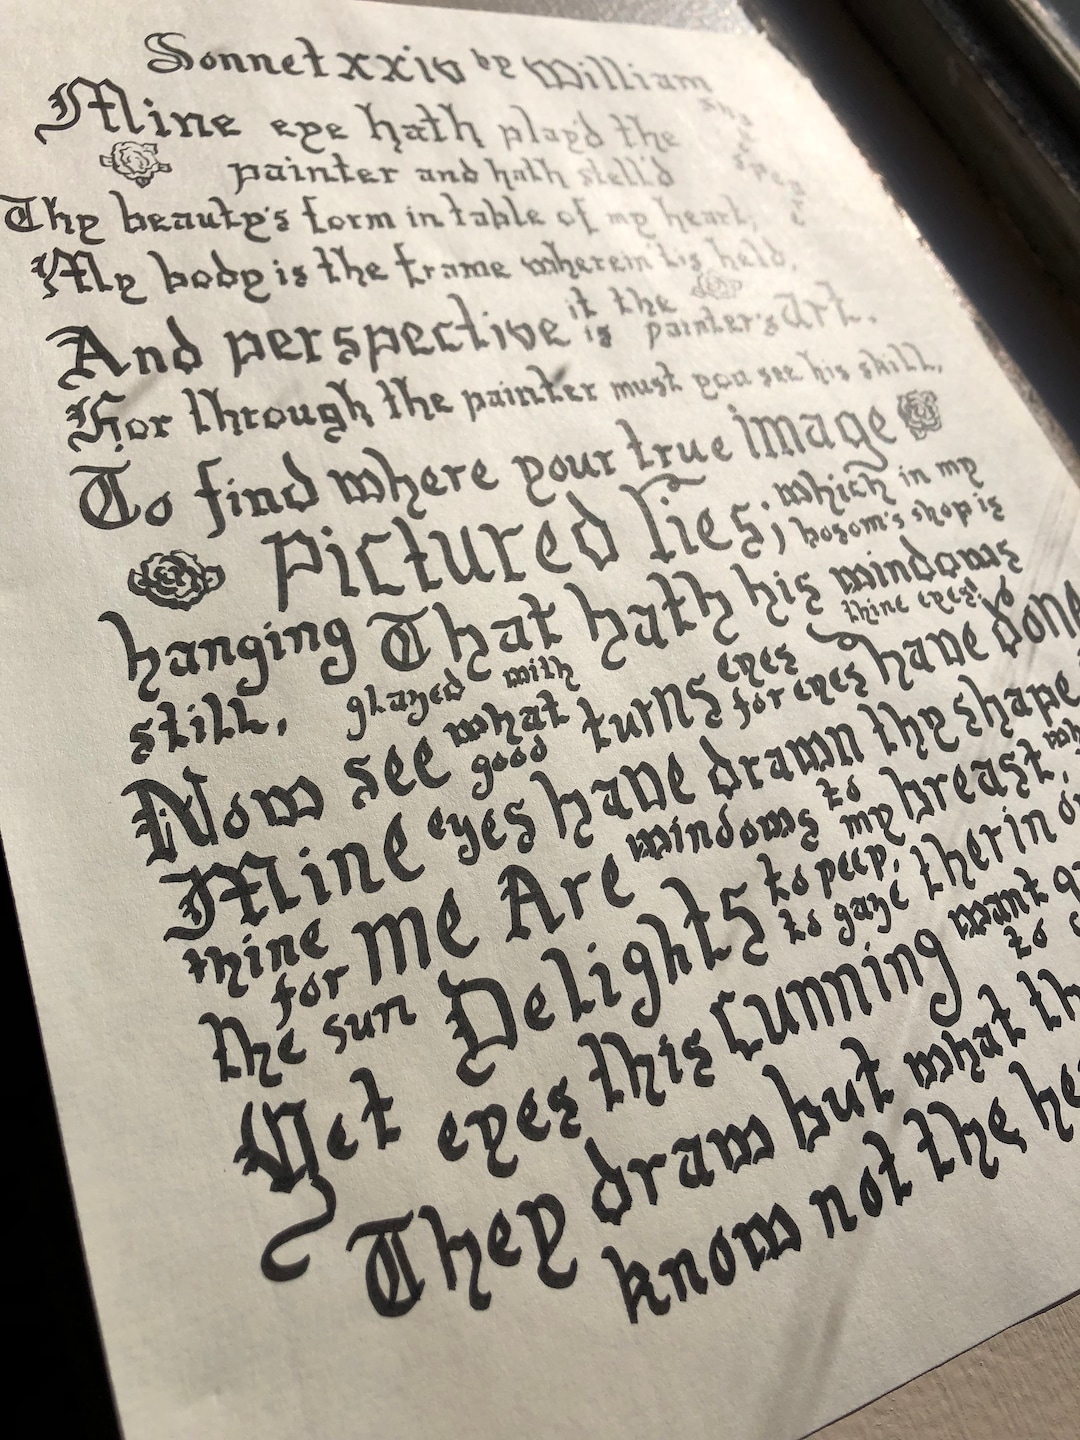 Sonnet xxiv by William Shakespeare
Mine eye hath play'd the
painter and hath stell'd
Thy beauty's form in table of my heart,
My body is the frame wherein 'tis held,
And perspective it is the painter's art.
For through the painter must you see his skill,
To find where your true image
Pictured lies; which in my bosom's shop is
hanging still, That hath his windows
glazed with thine eyes:
Now see what good turns eyes for eyes have done
Mine eyes have drawn thy shape,
thine for me Are windows to my breast,
the sun Delights to peep, to gaze therin
Yet eyes this cunning want to
They draw but what
know not the